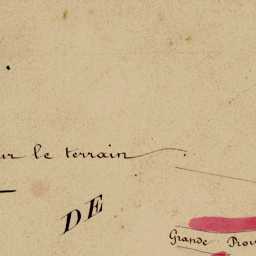 ur le terrain
DE
Grande